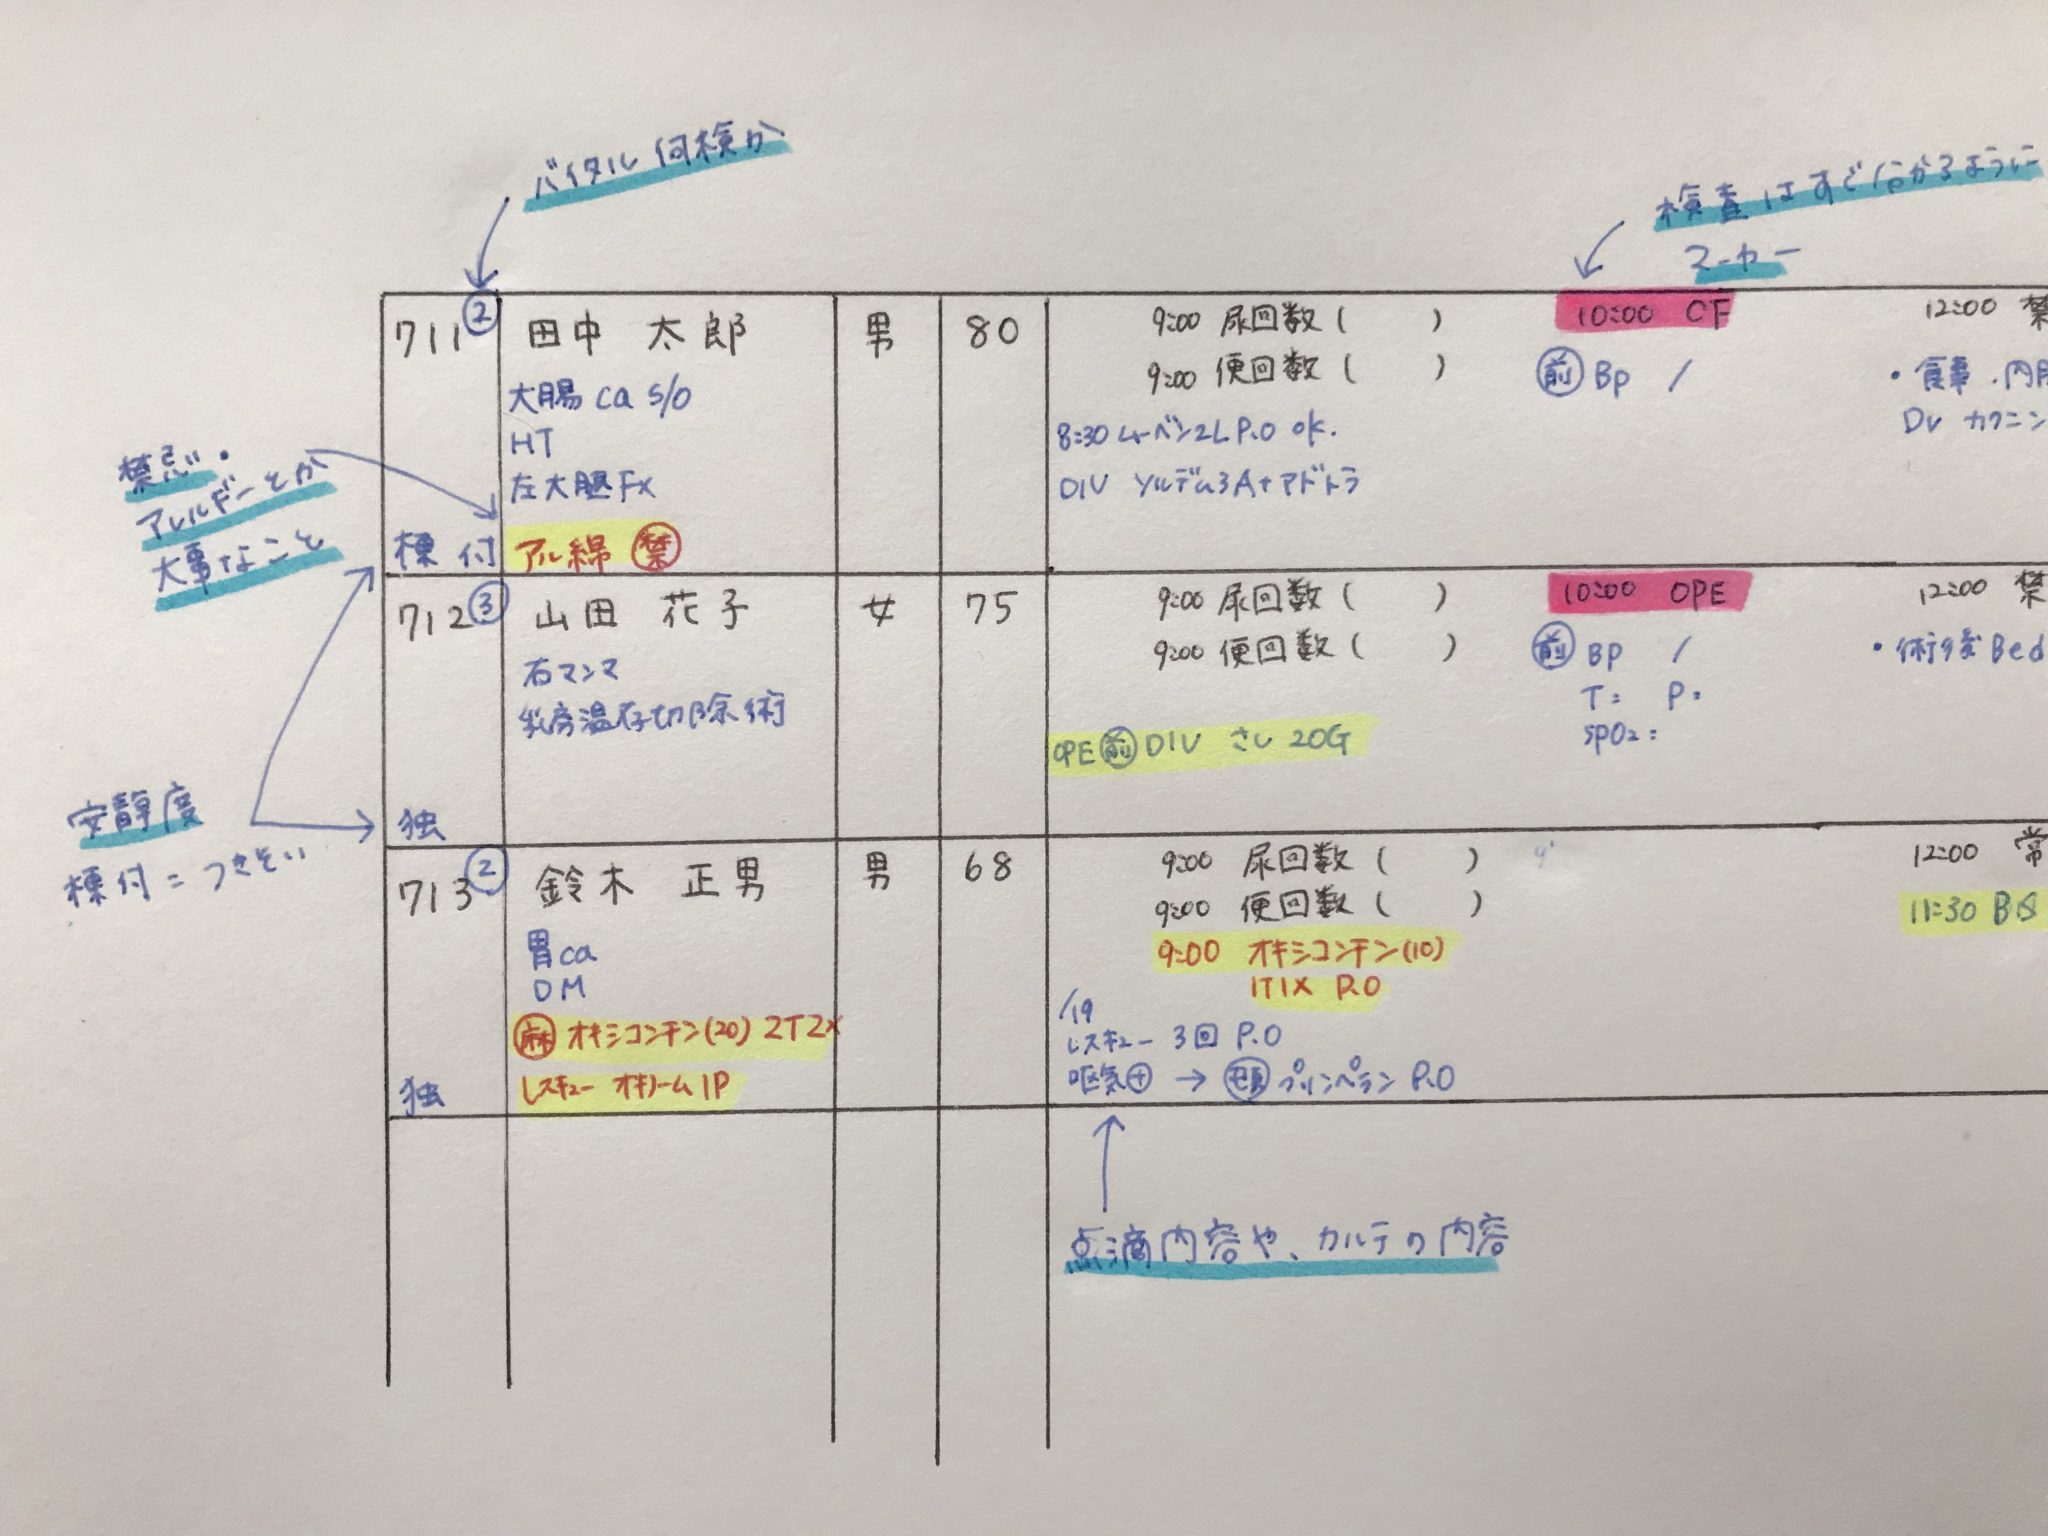 バイタル何検か
検査はすぐ分かるように
マーカー
禁忌・
アレルギーとか
大事なこと
安静度
棟付=つきそい
711 ② 田中 太郎 男 80 9:00 尿回数( ) 10:00 CF 12:00 禁
9:00 便回数( ) 前 Bp /
大腸 ca S/O
HT
左大腿Fx
8:30 ムーベン2L P.O ok.
DIV ソルデム3A+アドトラ
・食事.内服
Dr カクニン
棟付 アル綿 禁
712 ③ 山田 花子 女 75 9:00 尿回数( ) 10:00 OPE 12:00 禁
9:00 便回数( ) 前 BP /
T: P:
SPO2:
・術後Bed
右マンマ
乳房温存切除術
OPE 前 DIV さし 20G
独
713 ② 鈴木 正男 男 68 9:00 尿回数( ) 12:00 常
9:00 便回数( ) 11:30 BS
胃ca
DM
9:00 オキシコンチン(10)
1T1X P.O
麻 オキシコンチン(20) 2T2X
レスキュー オキノーム1P
/19
レスキュー 3回 P.O
嘔気⊕ → プリンペラン P.O
独
点滴内容や、カルテの内容